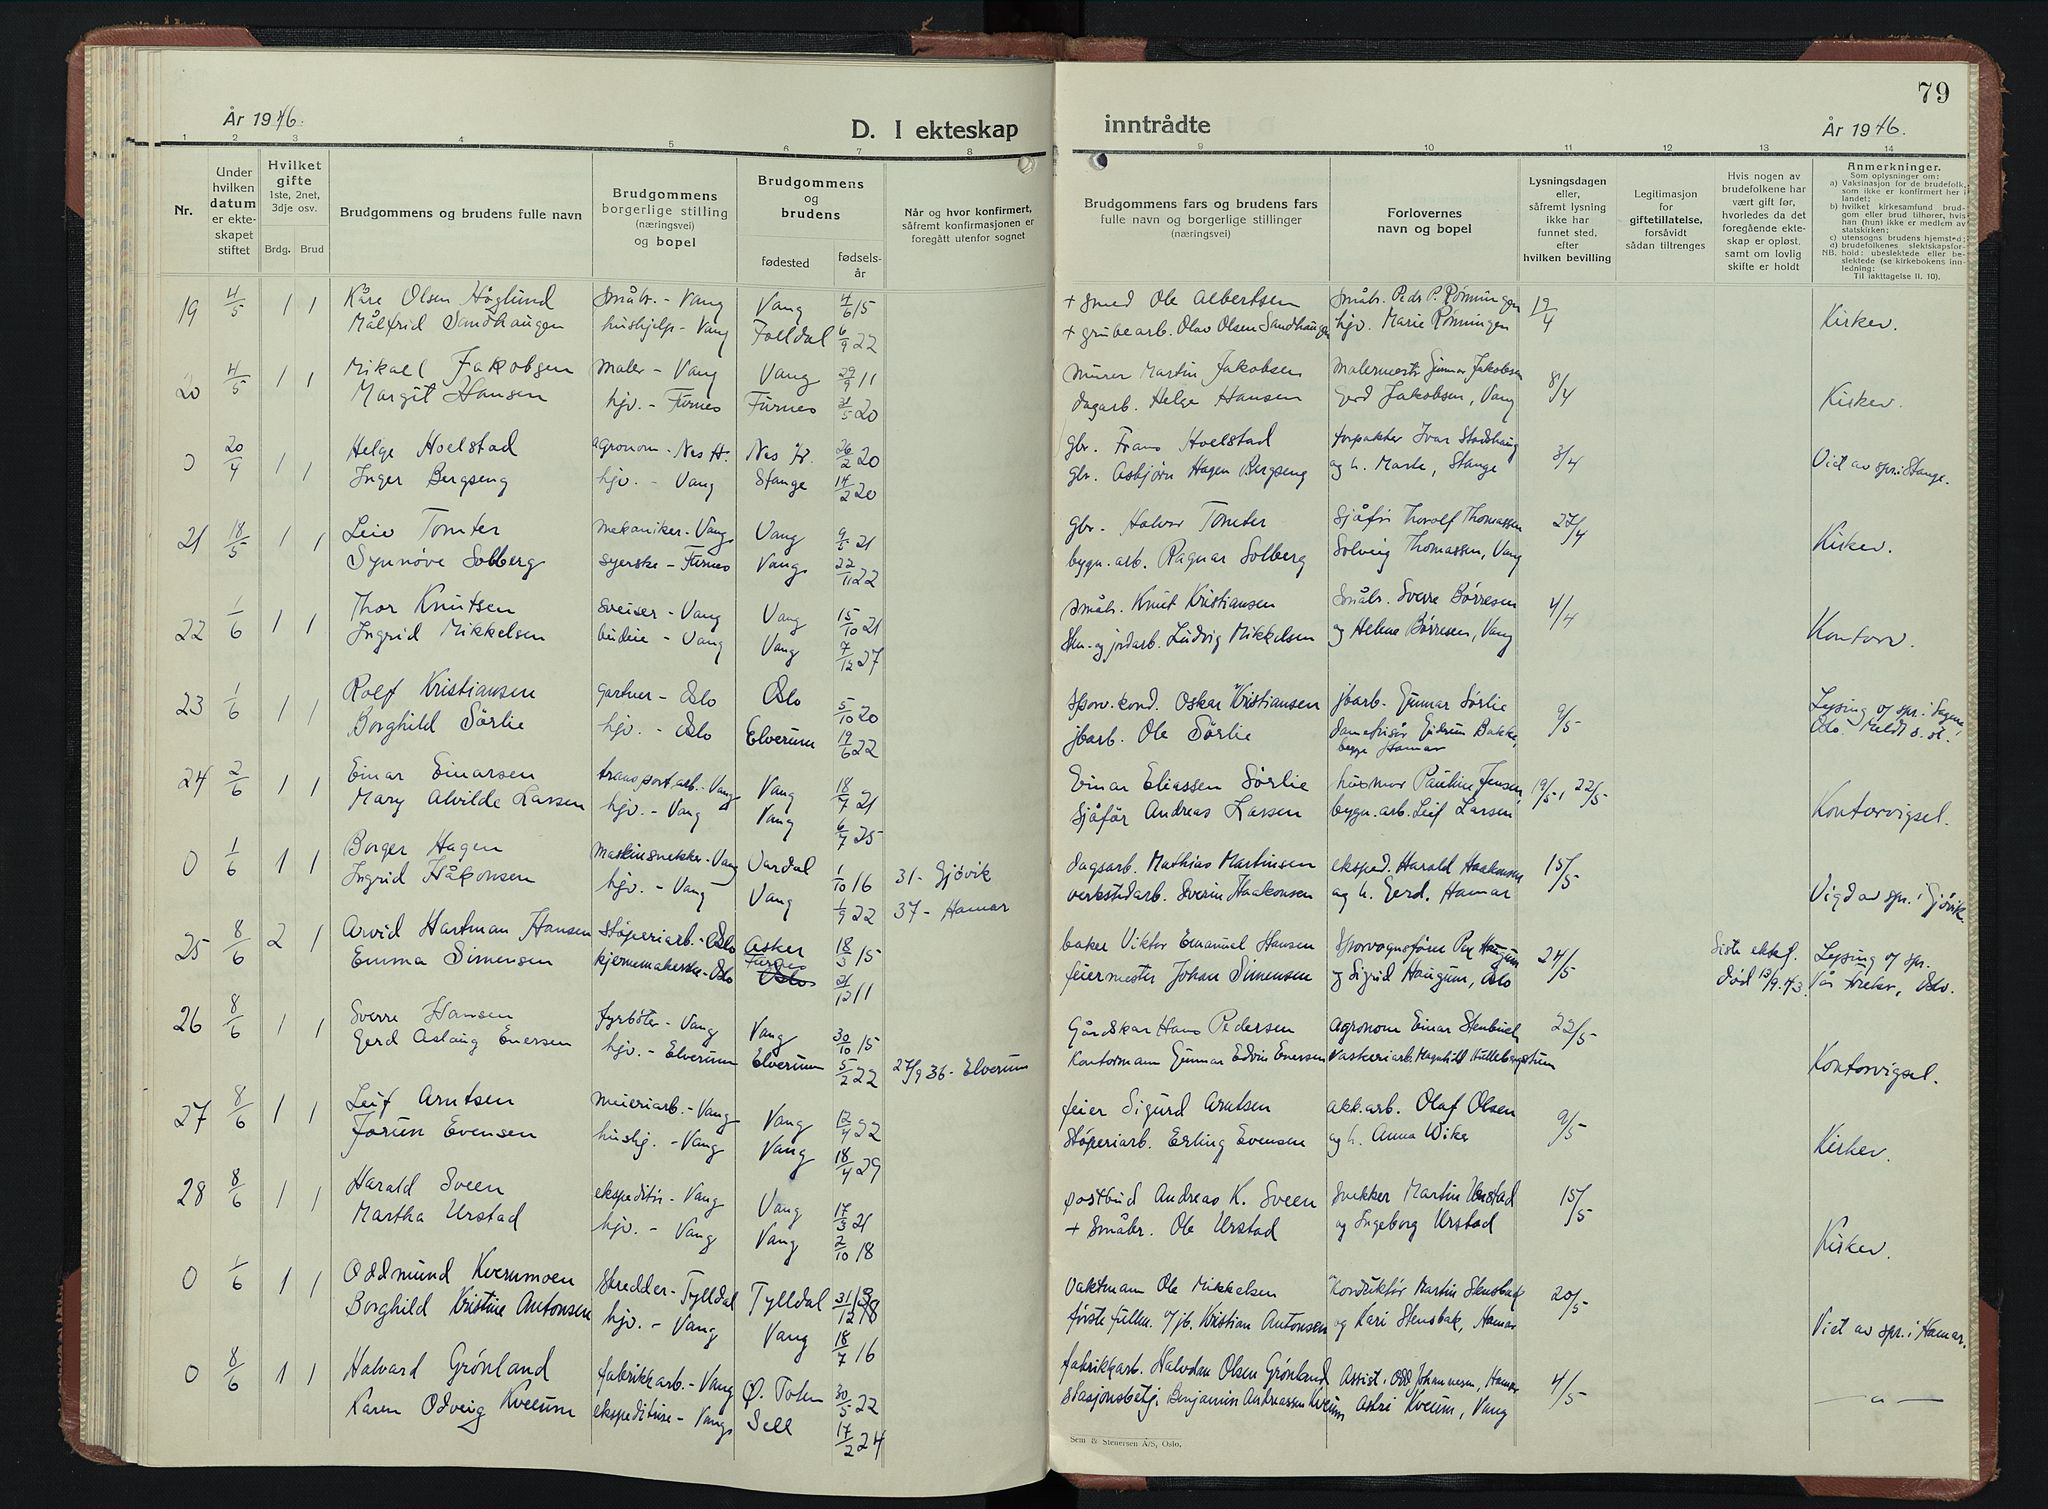 79
År 1946.
D. I ekteskap
inntrådte
År 1946.
1 2 3 4 5 6 7 8 9 10 11 12 13 14
Nr.
Under
hvilken
datum
er ekte-
skapet
stiftet
Hvilket
gifte
1ste, 2net,
3dje osv.
Brdg. Brud
Brudgommens og brudens fulle navn
Brudgommens
borgerlige stilling
(næringsvei)
og bopel
Brudgommens
og
brudens
fødested
fødsels-
år
Når og hvor konfirmert,
såfremt konfirmasjonen er
foregått utenfor sognet
Brudgommens fars og brudens fars
fulle navn og borgerlige stillinger
(næringsvei)
Forlovernes
navn og bopel
Lysningsdagen
eller,
såfremt lysning
ikke har
funnet sted,
efter
hvilken bevilling
Legitimasjon
for
giftetillatelse,
forsåvidt
sådan tiltrenges
Hvis nogen av
brudefolkene har
vært gift før,
hvorledes da det
foregående ekte-
skap er opløst,
samt om lovlig
skifte er holdt
Anmerkninger.
Som oplysninger om:
a) Vaksinasjon for de brudefolk,
som ikke er konfirmert her i
landet;
b) hvilket kirkesamfund brud-
gom eller brud tilhører, hvis
han (hun) ikke er medlem av
statskirken;
c) utensogns brudens hjemsted;
d) brudefolkenes slektskapsfor-
NB. hold: ubeslektede eller be-
slektede (se kirkebokens inn-
ledning:
Til iakttagelse II. 10).
19 4/5 1 1 Kåre Olsen Höglund småbr. - Vang Vang 4/6 15 + smed Ole Albertsen Småbr. Pedr P. Rønningen 12/4 Kirkev.
Målfrid Sandhaugen hushjelp - Vang Folldal 6/9 22 + grubearb. Olav Olsen Sandhaugen hjv. Marie Rønningen
20 4/5 1 1 Mikael Jakobsen maler - Vang Vang 29/9 11 murer Martin Jakobsen malermestr Gunnar Jakobsen 8/4 Kirkev.
Margit Hansen hjv. - Furnes Furnes 31/5 20 dagarb. Helge Hansen Gerd Jakobsen, Vang
0 20/4 1 1 Helge Hoelstad agronom - Nes H. Nes H. 26/2 20 gbr. Frans Hoelstad forpakter Ivar Stadshaug 3/4 Viet av spr. i Stange.
Inger Bergseng hjv. - Vang Stange 14/2 20 gbr. Asbjørn Hagen Bergseng og h. Marle, Stange
21 18/5 1 1 Leiv Tomter mekaniker - Vang Vang 9/5 21 gbr. Halvor Tomter Sjåfør Thorolf Thomassen 27/4 Kirkev.
Synnøve Solberg syerske - Furnes Vang 22/11 22 bygn. arb. Ragnar Solberg Solveig Thomassen, Vang
22 1/6 1 1 Thor Knutsen sveiser - Vang Vang 15/10 21 småbr. Knut Kristiansen Småbr. Sverre Børresen 4/4 Kontorv.
Ingrid Mikkelsen budeie - Vang Vang 7/12 27 Sten- og jordarb. Ludvig Mikkelsen og Helene Børresen, Vang
23 1/6 1 1 Rolf Kristiansen gartner - Oslo Oslo 5/10 20 sporv. kond. Oskar Kristiansen jbarb. Gunnar Sørlie 9/5 Lysing og spr. i Sagene
Borghild Sörlie hjv. - Oslo Elverum 19/6 22 jbarb. Ole Sørlie damefrisør Gudrun Bakke, Oslo. Meldt s. st.
begge Hamar
24 2/6 1 1 Einar Einarsen transportarb. - Vang Vang 18/7 21 Einar Eliassen Sørlie husmor Pauline Jensen, 19/5, 22/5 Kontorvigsel.
Mary Alvilde Larsen hjv. - Vang Vang 6/7 25 Sjåfør Andreas Larsen bygn. arb. Leif Larsen
0 1/6 1 1 Borger Hagen maskinsnekker - Vang Vardal 1/10 16 31 - Gjøvik dagsarb. Mathias Martinsen eksped. Harald Haakonsen 15/5 Vigd av spr. i Gjøvik.
Ingrid Håkonsen hjv. - Vang Vang 1/9 22 37 - Hamar verkstedarb. Sverin Haakonsen og h. Gerd. Hamar
25 8/6 2 1 Arvid Hartman Hansen støperiarb. - Oslo Asker 18/3 15 baker Viktor Emanuel Hansen Sporvognsfører Per Haugum 24/5 Siste ektef. Lysing og spr.
Emma Simensen kjernemakerske - Oslo Furnes Oslo 21/12 11 feiermester Johan Simensen og Sigrid Haugum, Oslo død 13/9.43. Vår frelser, Oslo.
26 8/6 1 1 Sverre Hansen fyrbøter - Vang Vang 30/10 15 Gårdskar Hans Pedersen Agronom Einar 22/5 Kontorvigsel.
Gerd Aslaug Enersen hjv. - Elverum Elverum 5/2 22 27/9 36 - Elverum Kontormann Gunnar Edvin Enersen Vaskeriarb. Magnhild
27 8/6 1 1 Leif Arntsen meieriarb. - Vang Vang 12/4 22 feier Sigurd Arntsen akk. arb. Olaf Olsen 9/5 Kirkev.
Jorun Evensen hushj. - Vang Vang 18/4 29 Støperiarb. Erling Evensen og h. Anna Wike
28 8/6 1 1 Harald Sveen ekspeditør - Vang Vang 17/3 21 postbud Andreas K. Sveen Snekker Martin Urstad 15/5 Kirkev.
Martha Urstad hjv. - Vang Vang 2/10 18 + Småbr. Ole Urstad og Ingeborg Urstad
0 1/6 1 1 Oddmund Kvernmoen Skredder - Tylldal Tylldal 31/12 18 Vaktmann Ole Mikkelsen Konduktør Martin Stensbak 20/5 Viet av spr. i Hamar.
Borghild Kristine Antonsen hjv. - Vang Vang 18/7 16 første fullm. v/jb. Kristian Antonsen og Kari Stensbak, Hamar
0 8/6 1 1 Halvard Grönland fabrikkarb. - Vang Ø. Toten 30/5 22 fabrikkarb. Halvdan Olsen Grönland Assist. Odd Johannesen, Hamar 4/5 — " —
Karen Odveig Kveum ekspeditrise - Vang Sell 17/2 24 Stasjonsbetj. Benjamin Andreassen Kveum Astri Kveum, Vang
Sem & Stenersen A/S, Oslo.